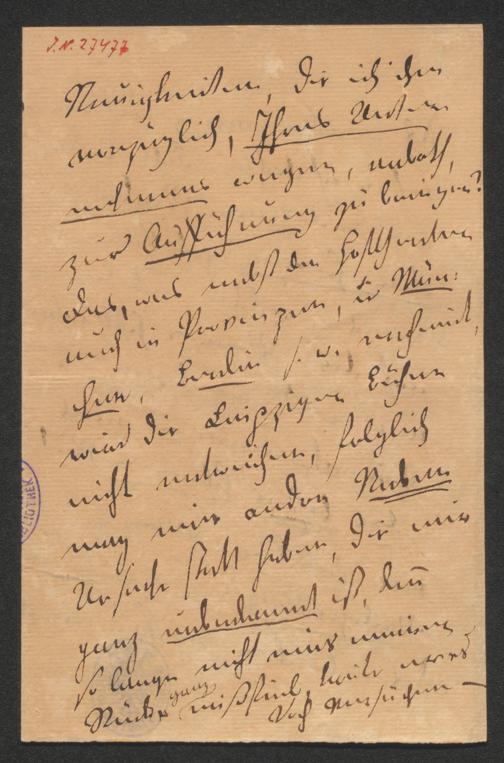 J.N. 27477
Neuigkeiten, die ich Ihnen
vorzüglich, Ihres Unter-
nehmens wegen, anboth,
zur Aufführung zu bringen?
Das, was nebst den Hoftheatern
auch in Provinzen, in Mün-
chen, Berlin s. w. aufweist,
wird die Leipziger Bühne
nicht entweichen, folglich
mag nur andre Neben
Ursache statt haben, die mir
ganz unbekannt ist, denn
so lange nicht meine
Stücke ganz mißfiel, heute
doch versuchen —
BLIOTHEK